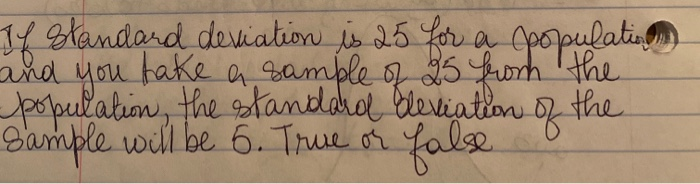 If standard deviation is 25 for a population
and you take a sample of 25 from the
population, the standard deviation of the
sample will be 5. True or false